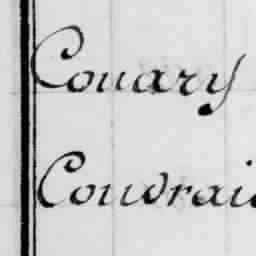 Couary
Coudrai